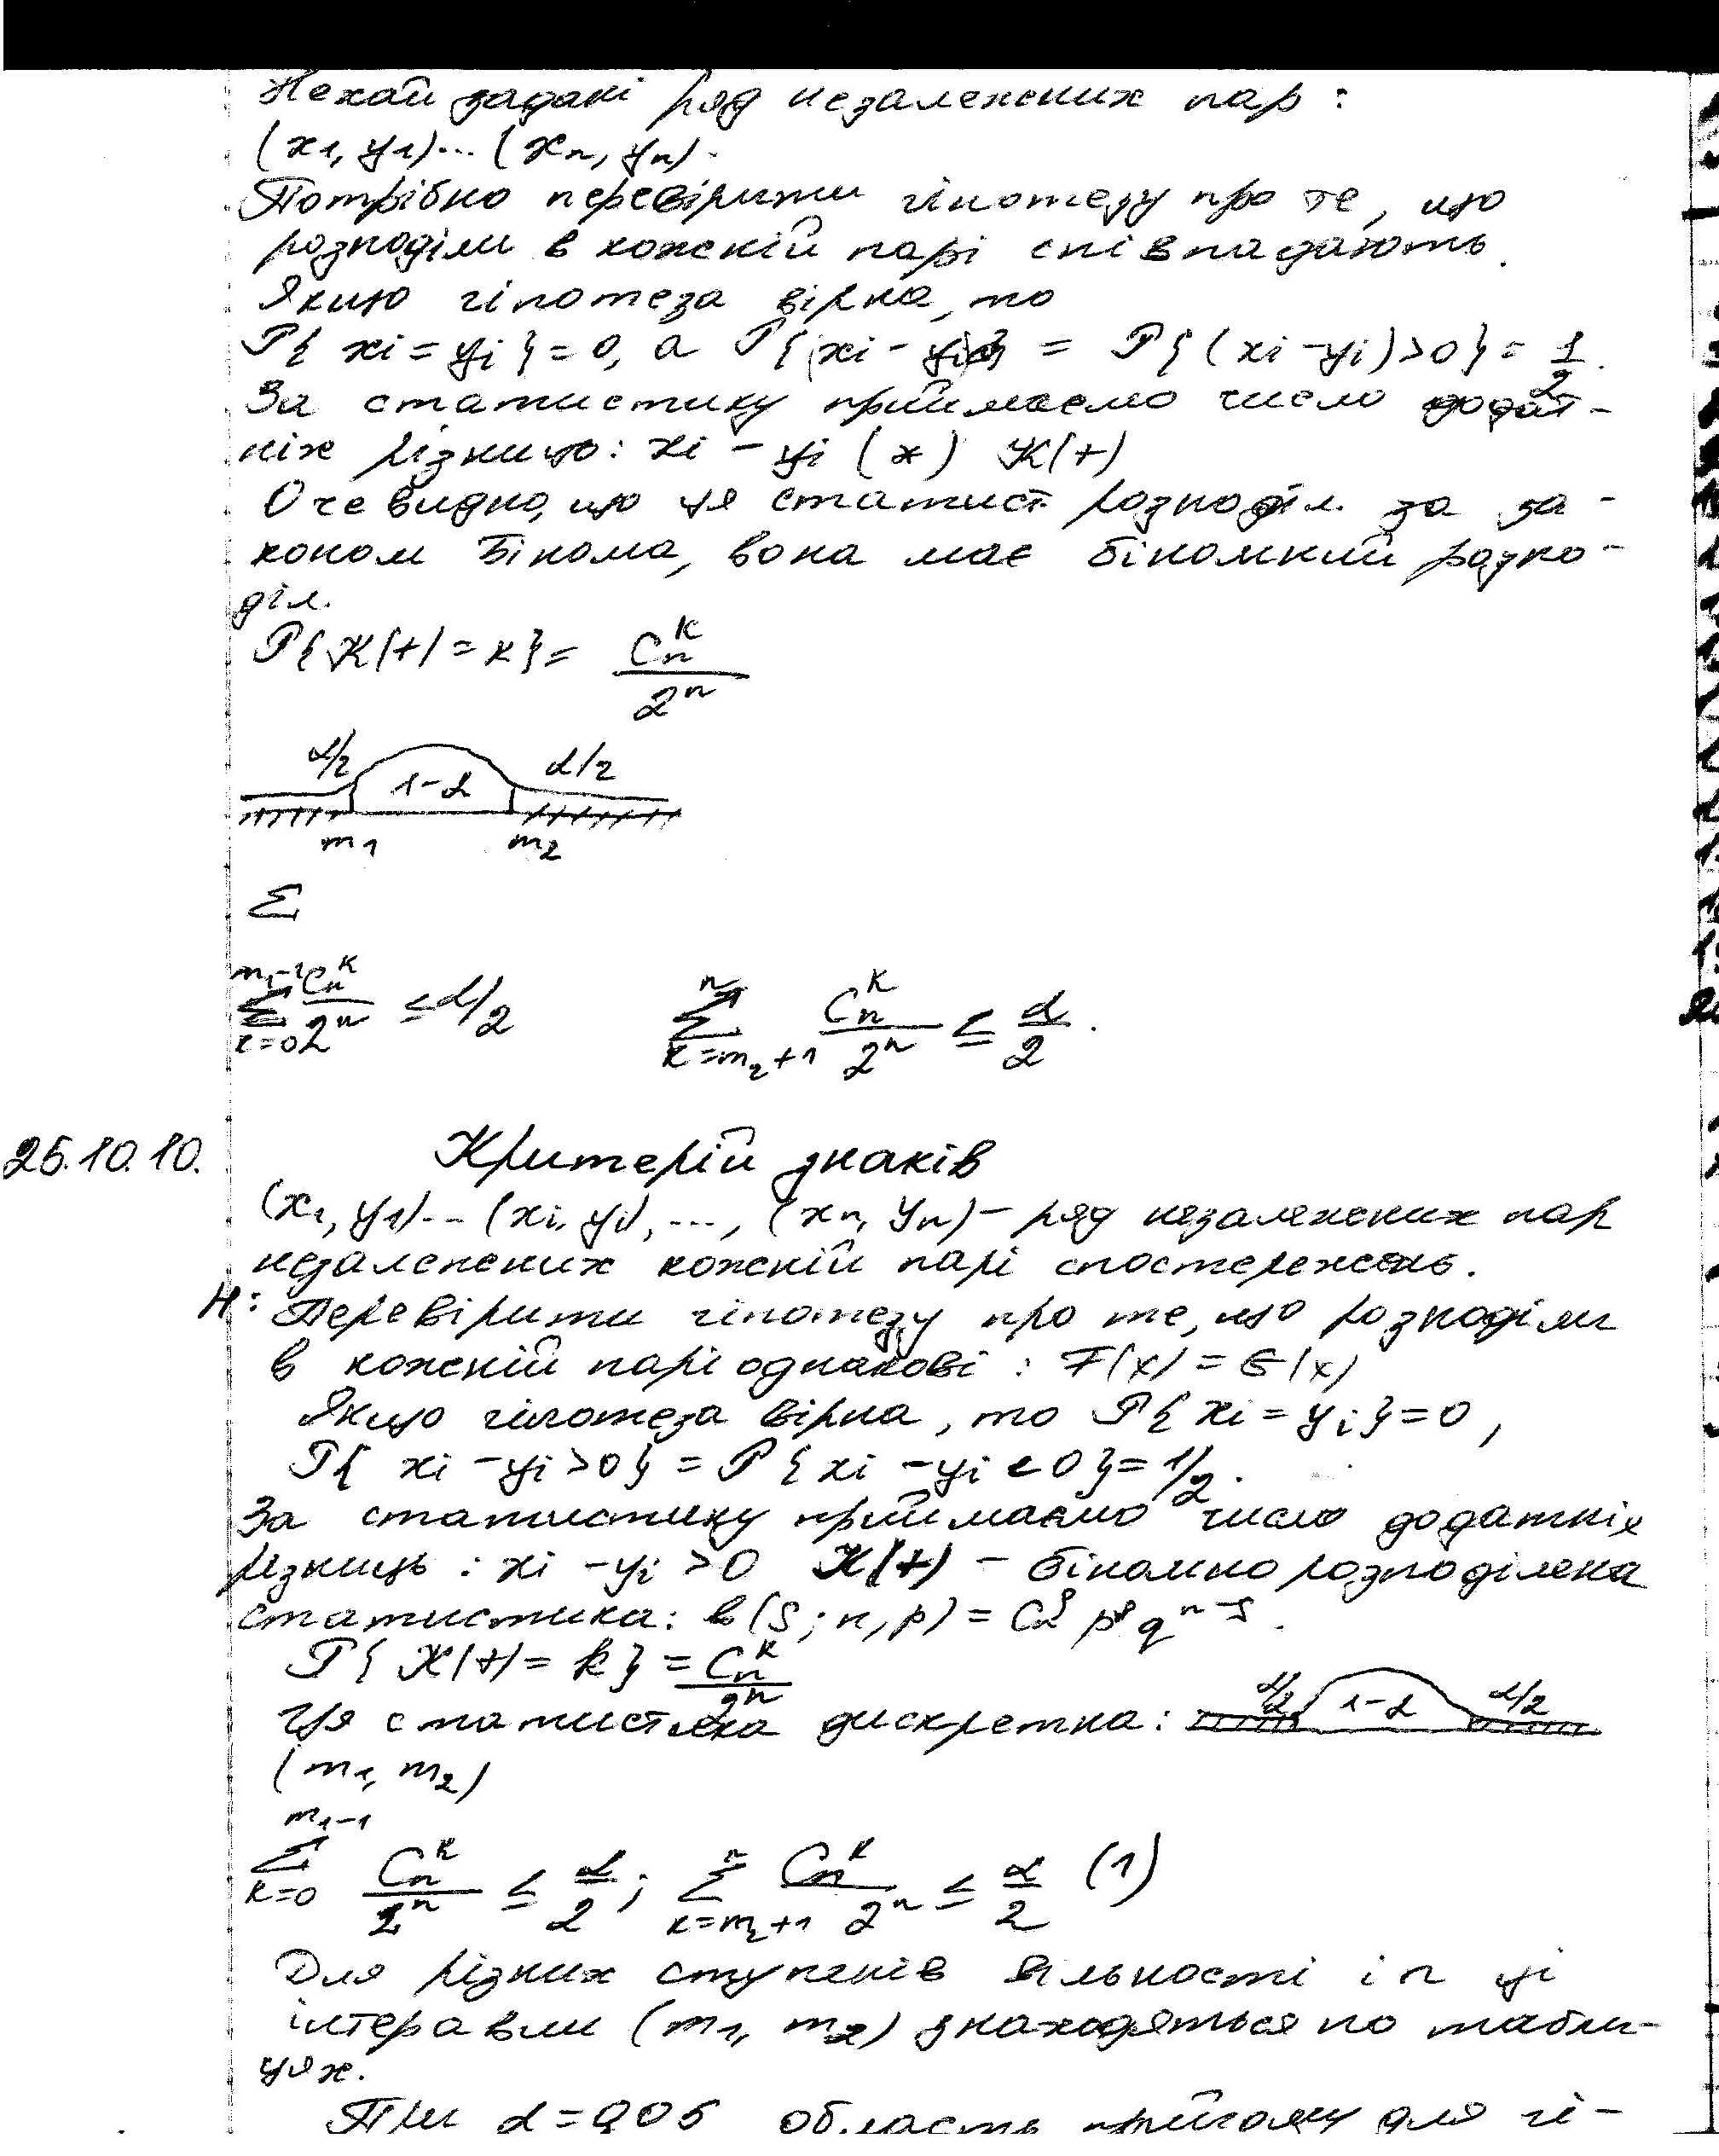 Нехай задані ряд незалежних пар :
(x1, y1)... (xn, yn).
Потрібно перевірити гіпотезу про те, що
розподіли в кожній парі співпадають.
Якщо гіпотеза вірна, то
P{ xi = yi } = 0, а P{ xi - yi } = P{ (xi - yi) > 0 } = 1/2.
За статистику приймаємо число додат-
ніх різниць: xi - yi (*) K(+)
Очевидно, що ця статист. розподіл. за за-
коном Бінома, вона має біномний розпо-
діл.
P{ K(+) = k } = C_n^k / 2^n
α/2 1-α α/2
m1 m2
Σ
Σ_{k=0}^{m1-1} C_n^k / 2^n ≤ α/2 Σ_{k=m2+1}^{n} C_n^k / 2^n ≤ α/2.
25.10.10. Критерій знаків
(x1, y1)... (xi, yi), ..., (xn, yn) - ряд незалежних пар
незалежних кожній парі спостережень.
H: Перевірити гіпотезу про те, що розподіли
в кожній парі однакові : F(x) = G(x)
Якщо гіпотеза вірна, то P{ xi = yi } = 0,
P{ xi - yi > 0 } = P { xi - yi < 0 } = 1/2.
За статистику приймаємо число додатніх
різниць : xi - yi > 0 K(+) - біномно розподілена
статистика: b(s; n, p) = C_n^s p^s q^{n-s}.
P{ K(+) = k } = C_n^k / 2^n
Ця статистика дискретна: α/2 1-α α/2
(m1, m2)
Σ_{k=0}^{m1-1} C_n^k / 2^n ≤ α/2 ; Σ_{k=m2+1}^{n} C_n^k / 2^n ≤ α/2 (1)
Для різних ступенів вільності і n ці
інтервали (m1, m2) знаходяться по табли-
цях.
При α = 0,05 область прийому для гі-